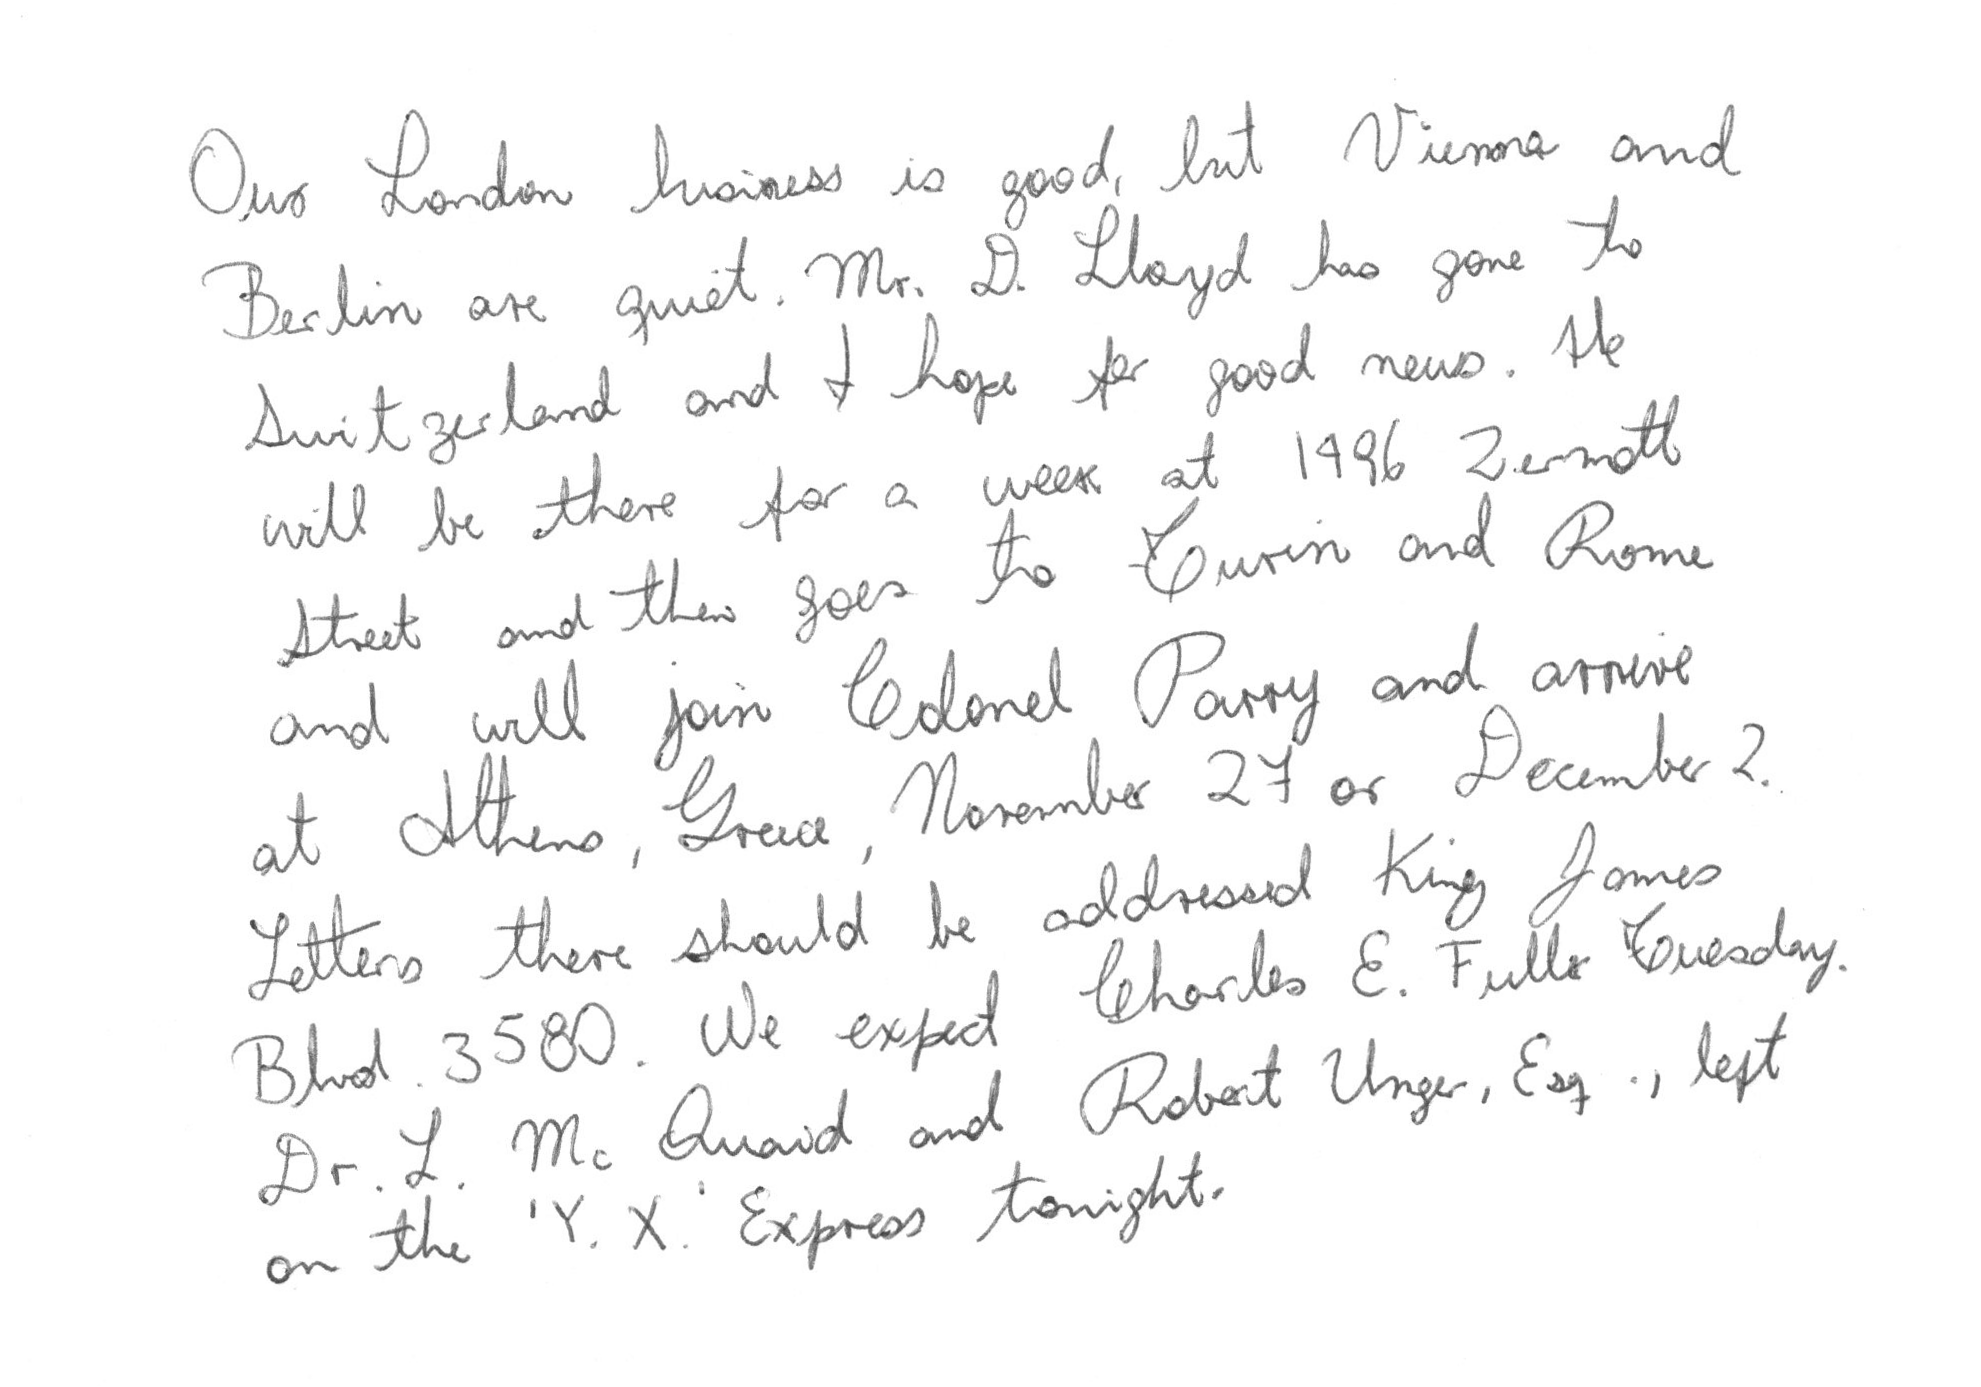 Our London business is good, but Vienna and
Berlin are quiet. Mr. D. Lloyd has gone to
Switzerland and I hope for good news. He
will be there for a week at 1496 Zermott
Street and then goes to Turin and Rome
and will join Colonel Parry and arrive
at Athens, Greece, November 27 or December 2.
Letters there should be addressed King James
Blvd. 3580. We expect Charles E. Fuller Tuesday.
Dr. L. Mc Quaid and Robert Unger, Esq., left
on the 'Y. X.' Express tonight.